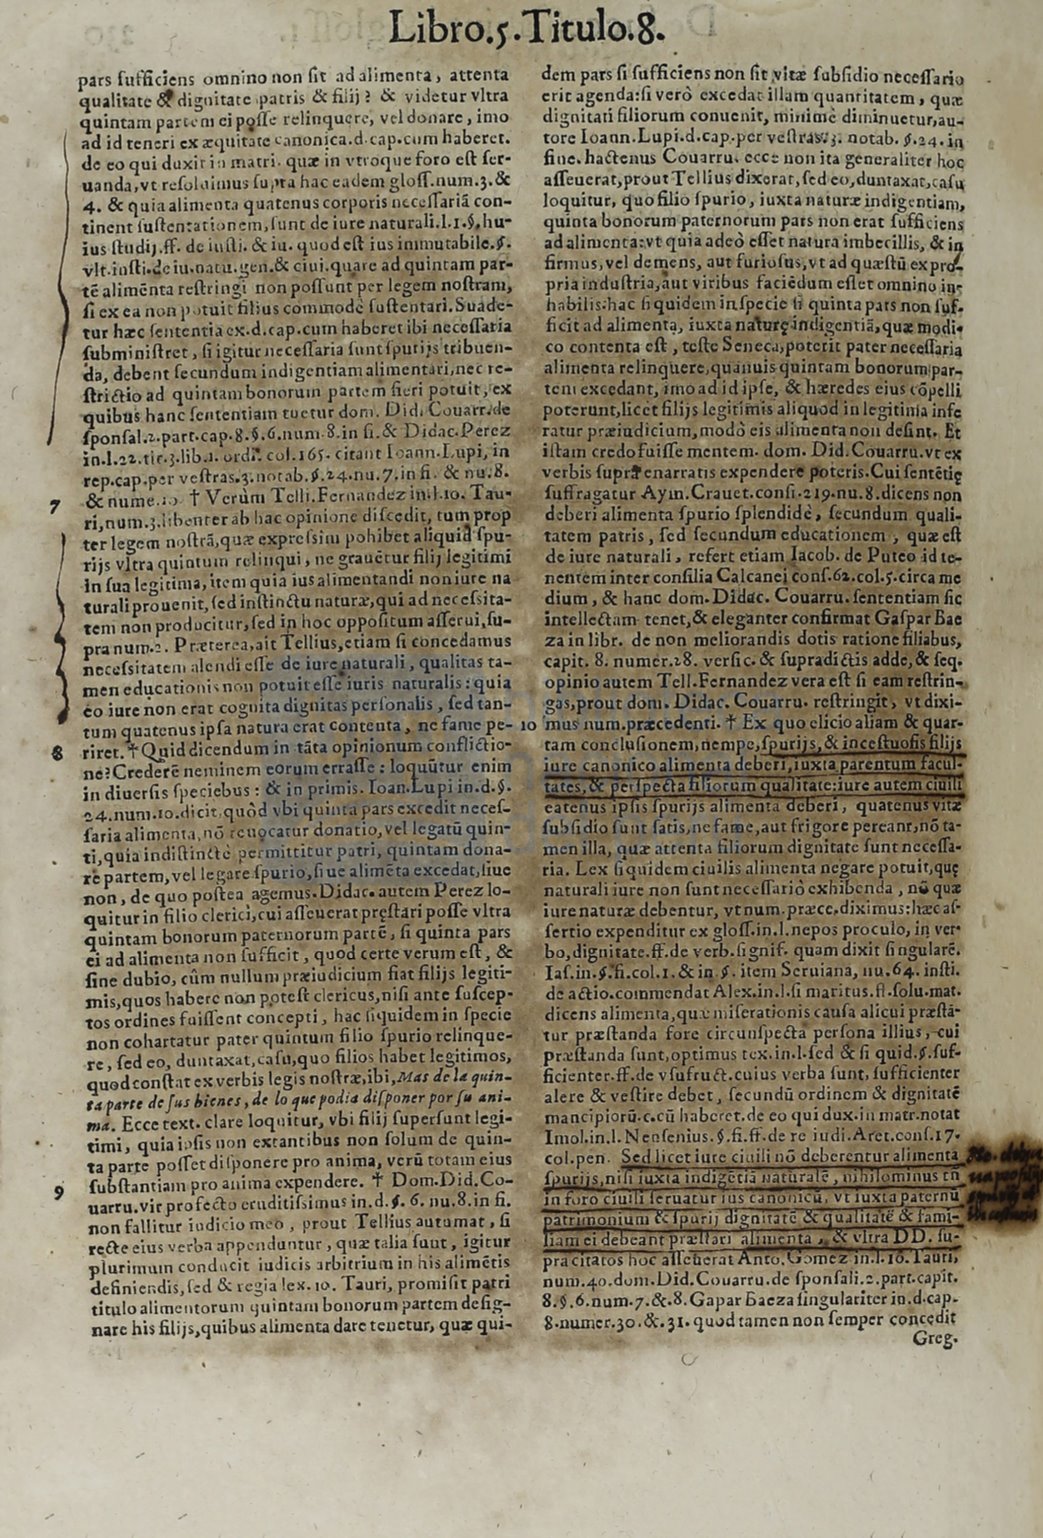 Libro.5.Titulo.8.
pars ſufficiens omnino non ſit ad alimenta, attenta
qualitate & dignitate patris & filij? & videtur vltra
quintam partem ei poſſe relinquere, vel donare, imo
ad id teneri ex æquitate canonica.d.cap.cum haberet.
de eo qui duxit in matri. quæ in vtroque foro eſt ſer-
uanda,vt reſoluimus ſupra hac eadem gloſſ.num.3.&
4. & quia alimenta quatenus corporis neceſſariã con-
tinent ſuſtentationem,ſunt de iure naturali.l.1.§.hu-
ius ſtudij.ff. de iuſti. & iu. quod eſt ius immutabile.§.
vlt.inſti.de iu.natu.gen.& ciui.quare ad quintam par-
tē alimēnta reſtringi non poſſunt per legem noſtram,
ſi ex ea non potuit filius commodè ſuſtentari.Suade-
tur hæc ſententia ex.d.cap.cum haberet ibi neceſſaria
ſubminiſtret, ſi igitur neceſſaria ſunt ſpurijs tribuen-
da, debent ſecundum indigentiam alimentari,nec re-
ſtrictio ad quintam bonorum partem fieri potuit, ex
quibus hanc ſententiam tuetur dom. Did. Couarr.de
ſponſal.2.part.cap.8.§.6.num.8.in fi.& Didac.Perez
in.l.22.tit.3.lib.1. ordi. col.165. citant Ioann.Lupi, in
rep.cap.per veſtras.3.notab.§.24.nu.7.in fi. & nu.8.
7 & nume.10. † Verùm Telli.Fernandez in.l.10. Tau-
ri,num.3.libenter ab hac opinione diſcedit, tum prop
ter legem noſtrã,quæ expreſsim pohibet aliquid ſpu-
rijs vltra quintum relinqui, ne grauētur filij legitimi
in ſua legitima,item quia ius alimentandi non iure na
turali prouenit,ſed inſtinctu naturæ,qui ad neceſsita-
tem non producitur,ſed in hoc oppoſitum aſſerui,ſu-
pra num.2. Præterea,ait Tellius,etiam ſi concedamus
neceſsitatem alendi eſſe de iure naturali, qualitas ta-
men educationis non potuit eſſe iuris naturalis: quia
eo iure non erat cognita dignitas perſonalis, ſed tan-
tum quatenus ipſa natura erat contenta, ne fame pe-
8 riret.† Quid dicendum in tãta opinionum conflictio-
ne?Crederē neminem eorum erraſſe: loquūtur enim
in diuerſis ſpeciebus: & in primis. Ioan.Lupi in.d.§.
24.num.10.dicit,quòd vbi quinta pars excedit neceſ-
ſaria alimenta,nõ reuocatur donatio,vel legatū quin-
ti,quia indiſtinctè permittitur patri, quintam dona-
re partem,vel legare ſpurio,ſiue alimēta excedat,ſiue
non, de quo poſtea agemus.Didac.autem Perez lo-
quitur in filio clerici,cui aſſeuerat pręſtari poſſe vltra
quintam bonorum paternorum partē, ſi quinta pars
ei ad alimenta non ſufficit, quod certe verum eſt, &
ſine dubio, cûm nullum præiudicium fiat filijs legiti-
mis,quos habere non poteſt clericus,niſi ante ſuſcep-
tos ordines fuiſſent concepti, hac ſiquidem in ſpecie
non cohartatur pater quintum filio ſpurio relinque-
re, ſed eo, duntaxat,caſu,quo filios habet legitimos,
quod conſtat ex verbis legis noſtræ,ibi,Mas de la quin-
ta parte de ſus bienes, de lo que podia diſponer por ſu ani-
ma. Ecce text. clare loquitur, vbi filij ſuperſunt legi-
timi, quia ipſis non extantibus non ſolum de quin-
ta parte poſſet diſponere pro anima, verū totam eius
9 ſubſtantiam pro anima expendere. † Dom.Did.Co-
uarru.vir profecto eruditiſsimus in.d.§. 6. nu.8.in fi.
non fallitur iudicio meo, prout Tellius autumat, ſi
recte eius verba appenduntur, quæ talia ſunt, igitur
plurimum conducit iudicis arbitrium in his alimētis
definiendis,ſed & regia lex.10. Tauri, promiſit patri
titulo alimentorum quintam bonorum partem deſig-
nare his filijs,quibus alimenta dare tenetur, quæ qui-
dem pars ſi ſufficiens non ſit vitæ ſubſidio neceſſario
erit agenda:ſi verò excedat illam quantitatem, quæ
dignitati filiorum conuenit, minimè diminuetur,au-
tore Ioann.Lupi.d.cap.per veſtras.3. notab. §.24. in
fine. hactenus Couarru. ecce non ita generaliter hoc
aſſeuerat,prout Tellius dixerat,ſed eo,duntaxat,caſu
loquitur, quo filio ſpurio, iuxta naturæ indigentiam,
quinta bonorum paternorum pars non erat ſufficiens
ad alimenta:vt quia adeò eſſet natura imbecillis, & in
firmus,vel demens, aut furioſus,vt ad quæſtū ex pro-
pria induſtria,aut viribus faciēdum eſſet omnino in-
habilis:hac ſi quidem in ſpecie ſi quinta pars non ſuf-
ficit ad alimenta, iuxta naturę indigentiã,quæ modi-
co contenta eſt, teſte Seneca,poterit pater neceſſaria
alimenta relinquere,quanuis quintam bonorum par-
tem excedant, imo ad id ipſe, & hæredes eius cõpelli
poterunt,licet filijs legitimis aliquod in legitima infe
ratur præiudicium,modò eis alimenta non deſint. Et
iſtam credo fuiſſe mentem. dom. Did.Couarru.vt ex
verbis ſupra enarratis expendere poteris.Cui ſentētię
ſuffragatur Aym.Crauet.conſi.219.nu.8.dicens non
deberi alimenta ſpurio ſplendidè, ſecundum quali-
tatem patris, ſed ſecundum educationem, quæ eſt
de iure naturali, refert etiam Iacob. de Puteo id te-
nentem inter conſilia Calcanei conſ.62.col.5.circa me
dium, & hanc dom.Didac. Couarru.ſententiam ſic
intellectam tenet,& eleganter confirmat Gaſpar Bae
za in libr. de non meliorandis dotis ratione filiabus,
capit. 8. numer.28. verſic. & ſupradictis adde,& ſeq.
opinio autem Tell.Fernandez vera eſt ſi eam reſtrin-
gas,prout dom. Didac. Couarru. reſtringit, vt dixi-
10 mus num.præcedenti. † Ex quo elicio aliam & quar-
tam concluſionem,nempe,ſpurijs,& inceſtuoſis filijs
iure canonico alimenta deberi,iuxta parentum facul-
tates,& perſpecta filiorum qualitate:iure autem ciuili
eatenus ipſis ſpurijs alimenta deberi, quatenus vitæ
ſubſidio ſunt ſatis,ne fame,aut frigore pereant,nõ ta-
men illa, quæ attenta filiorum dignitate ſunt neceſſa-
ria. Lex ſiquidem ciuilis alimenta negare potuit,quę
naturali iure non ſunt neceſſariò exhibenda, nõ quæ
iure naturæ debentur, vt num.præce.diximus:hæc aſ-
ſertio expenditur ex gloſſ.in.l.nepos proculo, in ver-
bo,dignitate.ff.de verb.ſignif. quam dixit ſingularē.
Iaſ.in.§.fi.col.1.& in §. item Seruiana, nu.64. inſti.
de actio.commendat Alex.in.l.ſi maritus.ff.ſolu.mat.
dicens alimenta,quæ miſerationis cauſa alicui præſtã-
tur præſtanda fore circunſpecta perſona illius, cui
præſtanda ſunt,optimus tex.in.l.ſed & ſi quid.§.ſuf-
ficienter.ff.de vſufruct.cuius verba ſunt, ſufficienter
alere & veſtire debet, ſecundū ordinem & dignitatē
mancipiorū.c.cū haberet.de eo qui dux.in matr.notat
Imol.in.l.Neoſenius.§.fi.ff.de re iudi.Aret.conſ.17.
col.pen. Sed licet iure ciuili nõ deberentur alimenta
ſpurijs,niſi iuxta indigētiã naturalē, nihilominus etiã
in foro ciuili ſeruatur ius canonicū, vt iuxta paternū
patrimonium & ſpurij dignitatē & qualitatē & fami-
liam ei debeant præſtari alimenta, & vltra DD. ſu-
pra citatos hoc aſſeuerat Anto.Gomez in.l.10.Tauri,
num.40.dom.Did.Couarru.de ſponſali.2.part.capit.
8.§.6.num.7.&.8.Gapar Baeza ſingulariter in.d.cap.
8.numer.30.&.31. quod tamen non ſemper concedit
Greg.